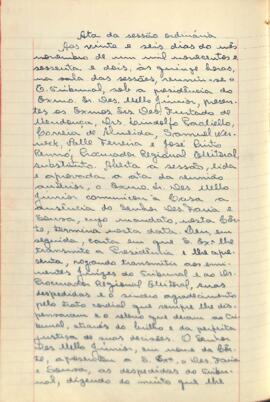 Ata da sessão ordinária
Aos vinte e seis dias do mês
novembro de um mil novecentos e
sessenta e dois, às quinze horas,
na sala das sessões, reuniu-se o
E. Tribunal, sob a presidência do
Exmo. Sr. Des. Mello Júnior, presen-
tes os Exmos. Srs. Des. Furtado de
Mendonça, Drs.
Correia de Almeida, Samuel Wer-
neck, Valle Ferreira e José Pinto
Renó, Procurador Regional Eleitoral
substituto. Aberta a sessão, lida
e aprovada a ata da reunião
anterior, o Exmo. Sr. Des. Mello
Júnior comunicou à Casa a
ausência do Senhor Des. Faria e
Sousa, cujo mandato, nesta Côr-
te, termina nesta data. Leu, em
seguida, carta em que S. Exa. lhe
transmite a Presidência e lhe apre-
senta, rogando transmitir aos emi-
nentes Juízes do Tribunal e ao Dr.
Procurador Regional Eleitoral, suas
despedidas e o sincero agradecimento
pelo trato cordial que sempre lhe dis-
pensaram e o relêvo que deram ao Tri-
bunal, através do brilho e da perfeita
justiça de suas decisões. O Senhor
Des. Mello Júnior, em nome da Côr-
te, apresentou a S. Exa., o Des. Faria
e Sousa, as despedidas do Tribu-
nal, dizendo do muito que lhe